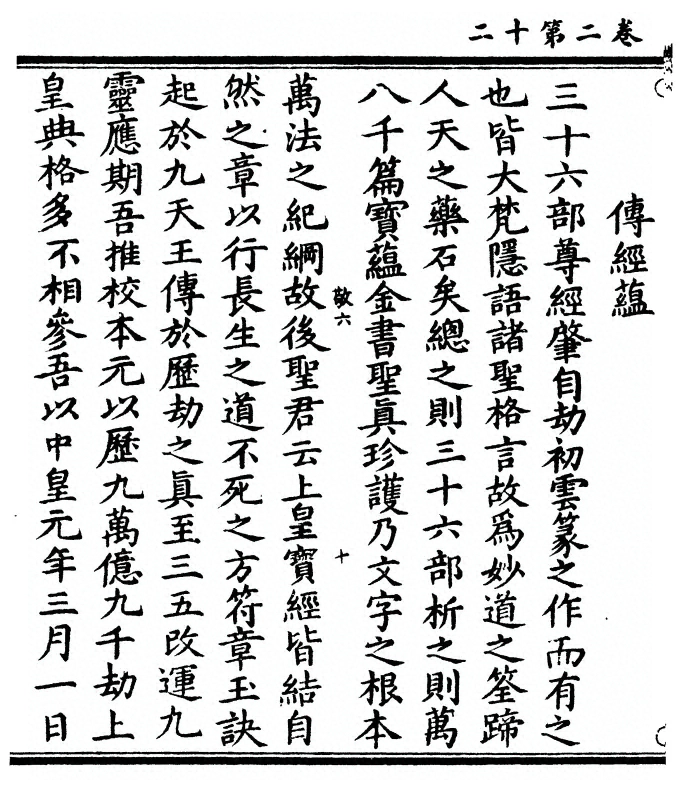 二十第二卷
傳經蘊
三十六部尊經肇自劫初雲篆之作而有之
也皆大梵隱語諸聖格言故爲妙道之筌蹄
人天之藥石矣總之則三十六部析之則萬
八千篇寶蘊金書聖真珍護乃文字之根本
敬六
十
萬法之紀綱故後聖君云上皇寶經皆結自
然之章以行長生之道不死之方符章玉訣
起於九天王傳於歷劫之真至三五改運九
靈應期吾推校本元以歷九萬億九千劫上
皇典格多不相參吾以中皇元年三月一日